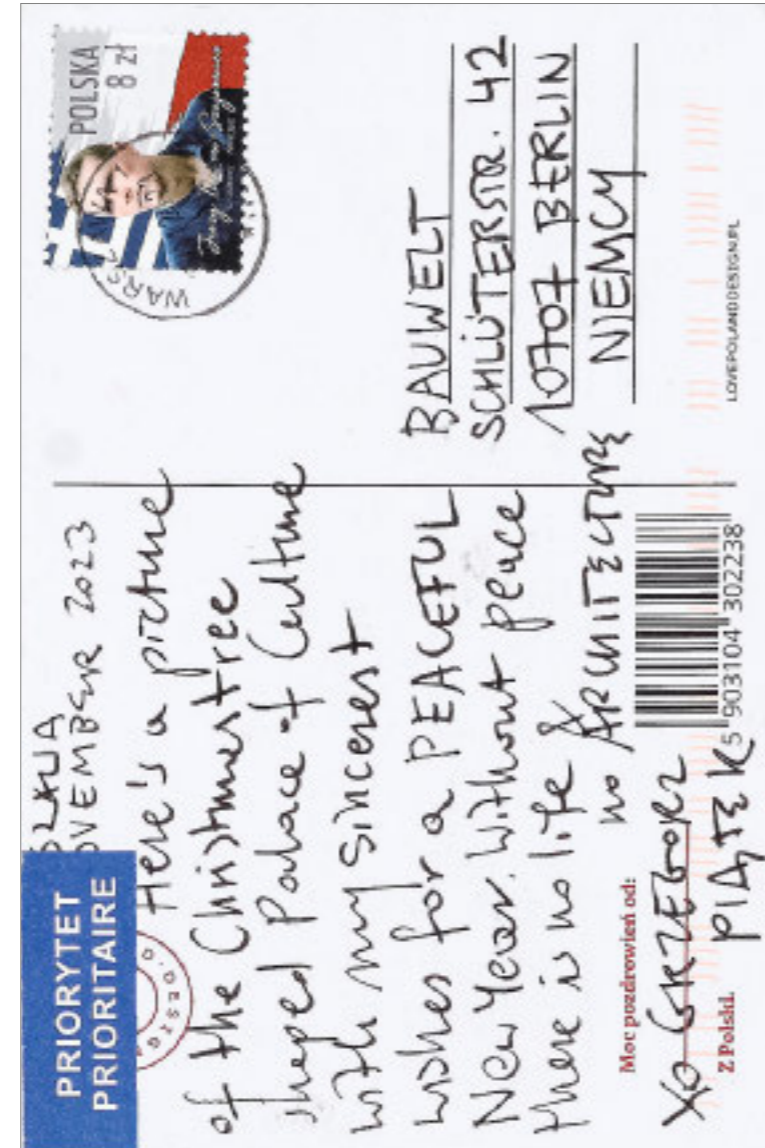 PRIORYTET
PRIORITAIRE
SZAWA
OVEMBER 2023
Here's a picture
of the Christmas tree
shaped Palace of Culture
with my sincerest
wishes for a PEACEFUL
New Year. Without peace
there is no life &
no ARCHITECTURE
Moc pozdrowień od:
XO GRZEGORZ
PIĄTEK
Z Polski.
5 903104 302238
POLSKA
8 zł
WARSZ
BAUWELT
SCHLÜTERSTR. 42
10707 BERLIN
NIEMCY
LOVEPOLANDDESIGN.PL